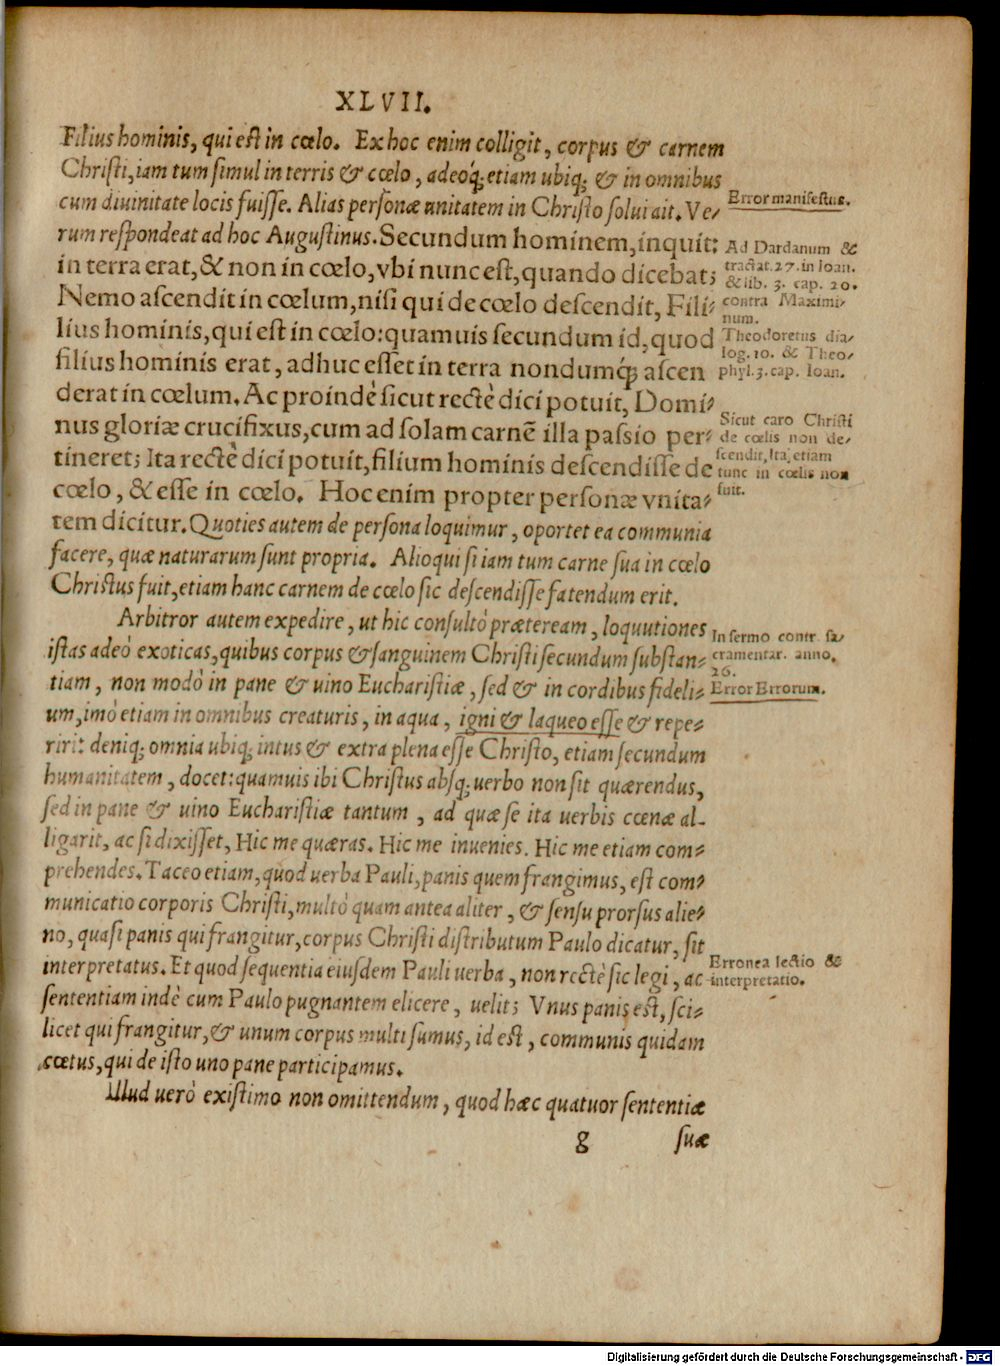 XLVII.
Filius hominis, qui est in cœlo. Ex hoc enim colligit, corpus & carnem
Christi, iam tum simul in terris & cœlo, adeóq; etiam ubiq; & in omnibus
cum diuinitate locis fuisse. Alias personæ unitatem in Christo solui ait. Ve⸗
Error manifestus.
rum respondeat ad hoc Augustinus. Secundum hominem, inquit:
in terra erat, & non in cœlo, vbi nunc est, quando dicebat;
Nemo ascendit in cœlum, nisi qui de cœlo descendit, Fili⸗
lius hominis, qui est in cœlo: quamuis secundum id, quod
filius hominis erat, adhuc esset in terra nondumq́; ascen
derat in cœlum. Ac proindè sicut rectè dici potuit, Domi⸗
nus gloriæ crucifixus, cum ad solam carnē illa passio per⸗
tineret; Ita rectè dici potuit, filium hominis descendisse de
cœlo, & esse in cœlo. Hoc enim propter personæ vnita⸗
tem dicitur. Quoties autem de persona loquimur, oportet ea communia
Ad Dardanum &
tractat. 27. in Ioan.
& lib. 3. cap. 20.
contra Maximi⸗
num.
Theodoretus dia⸗
log. 10. & Theo⸗
phyl. 3. cap. Ioan.
Sicut caro Christi
de cœlis non de⸗
scendit, Ita etiam
tunc in cœlis non
fuit.
facere, quæ naturarum sunt propria. Alioqui si iam tum carne sua in cœlo
Christus fuit, etiam hanc carnem de cœlo sic descendisse fatendum erit.
Arbitror autem expedire, ut hic consultò præteream, loquutiones
istas adeò exoticas, quibus corpus & sanguinem Christi secundum substan⸗
tiam, non modò in pane & uino Eucharistiæ, sed & in cordibus fideli⸗
um, imò etiam in omnibus creaturis, in aqua, igni & laqueo esse & repe⸗
riri: deniq; omnia ubiq; intus & extra plena esse Christo, etiam secundum
In sermo contr. sa⸗
cramentar. anno.
26.
Error Errorum.
humanitatem, docet: quamuis ibi Christus absq; uerbo non sit quærendus,
sed in pane & uino Eucharistiæ tantum, ad quæ se ita uerbis cœnæ al-
ligarit, ac si dixisset, Hic me quæras. Hic me inuenies. Hic me etiam com⸗
prehendes. Taceo etiam, quod uerba Pauli, panis quem frangimus, est com⸗
municatio corporis Christi, multò quam antea aliter, & sensu prorsus alie⸗
no, quasi panis qui frangitur, corpus Christi distributum Paulo dicatur, sit
interpretatus. Et quod sequentia eiusdem Pauli uerba, non rectè sic legi, ac
Erronea lectio &
interpretatio.
sententiam indè cum Paulo pugnantem elicere, uelit; Vnus panis est, sci⸗
licet qui frangitur, & unum corpus multi sumus, id est, communis quidam
cœtus, qui de isto uno pane participamus.
Illud uerò existimo non omittendum, quod hæc quatuor sententiæ
g suæ
Digitalisierung gefördert durch die Deutsche Forschungsgemeinschaft - DFG